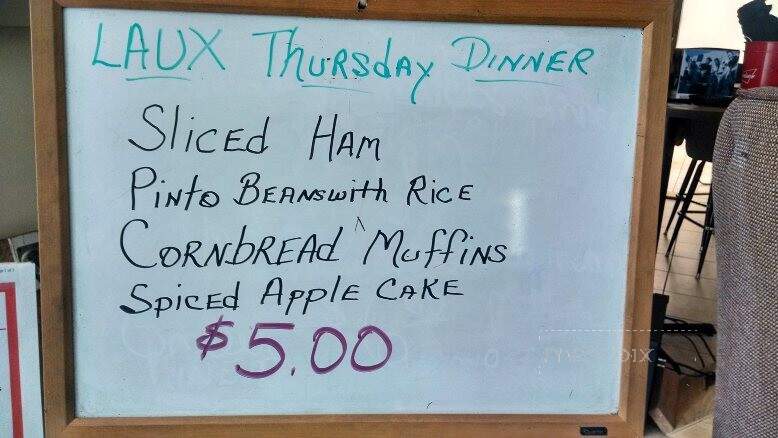 LAUX Thursday Dinner
Sliced Ham
Pinto Beans with Rice
Cornbread Muffins
Spiced Apple Cake
$5.00